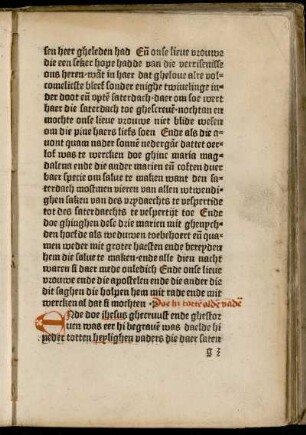 sen heer gheleden had Eñ onse lieue vrouwe
die een seker hope hadde van die verrisenisse
ons heren·wãt in haer dat gheloue alre vol
comelicste bleef sonder enighe twiuelinge in
der doot eñ optẽ saterdach·daer om soe wert
haer die saterdach toe ghescreuẽ·nochtan en
mochte onse lieue vrouwe niet blide wesen
om die pine haers liefs soen Ende als die a-
uont quam nader sonnẽ nedergãc dattet oer-
lof was te wercken doe ghinc maria mag-
dalena ende die ander marien eñ coften duer
baer specie om salue te maken want den sa-
terdach mosten vieren van allen wtwendi-
ghen saken van des vrydachts te vespertide
tot des saterdaechts te vespertijt toe Ende
doe ghinghen dese drie marien mit
hoefde als weduwen toebehoert eñ qua-
men weder mit groter haesten ende bereyden
hem die salue te maken·ende alle dien nacht
waren si daer mede onledich Ende onse lieue
vrouwe ende die apostelen ende die ander die
dit saghen die holpen hem mit rade ende mit
wercken al dat si mochten
ENde doe ihesus ghecruust ende ghestor
uen was eer hi begrauẽ was daelde hi
neder totten heylighen vaders die daer saten
g 2